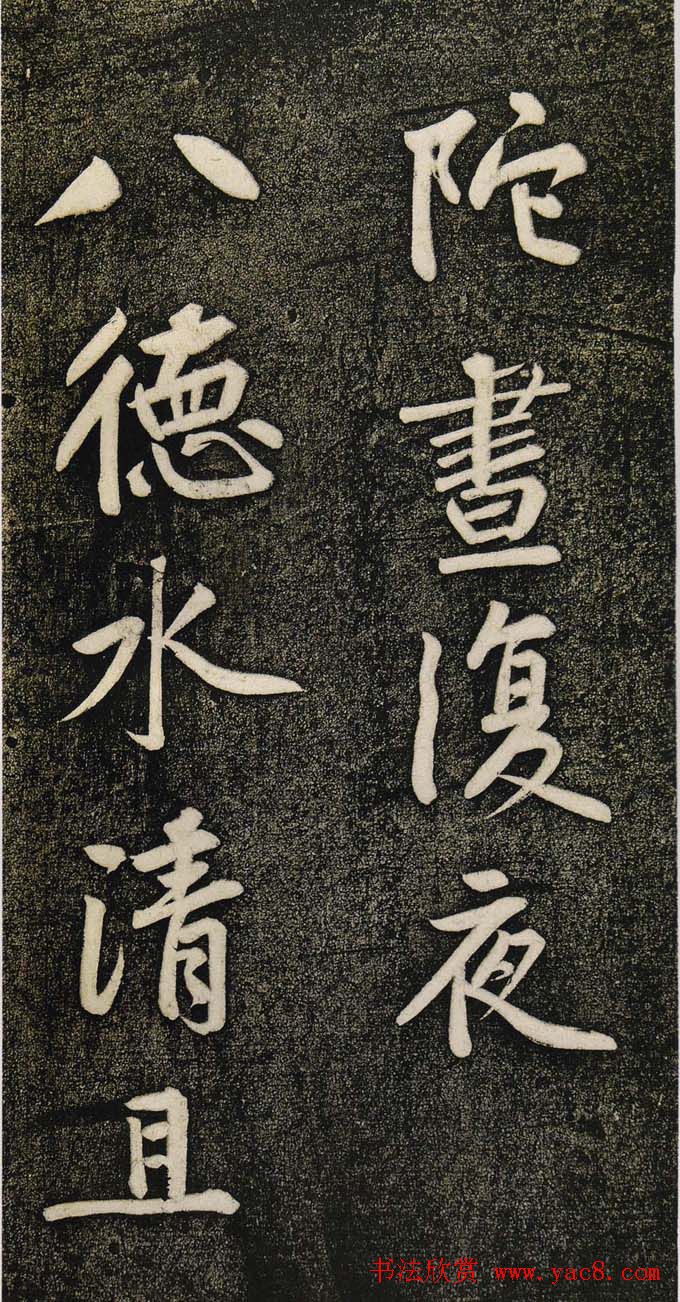 陀晝復夜
八德水清且
书法欣赏 www.yac8.com